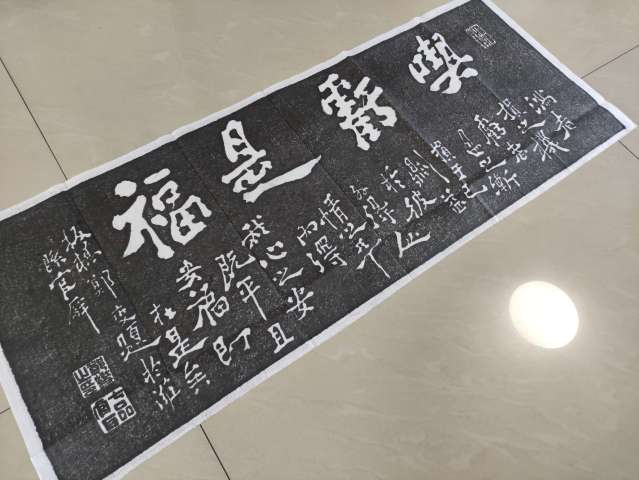 喫虧是福
滿者
損之機
虧者
盈之漸
損于己
則利
於彼外
得人
情之平
內得
我心之安
既平且
安福即
在是矣
板橋鄭燮題於濰
縣官廨